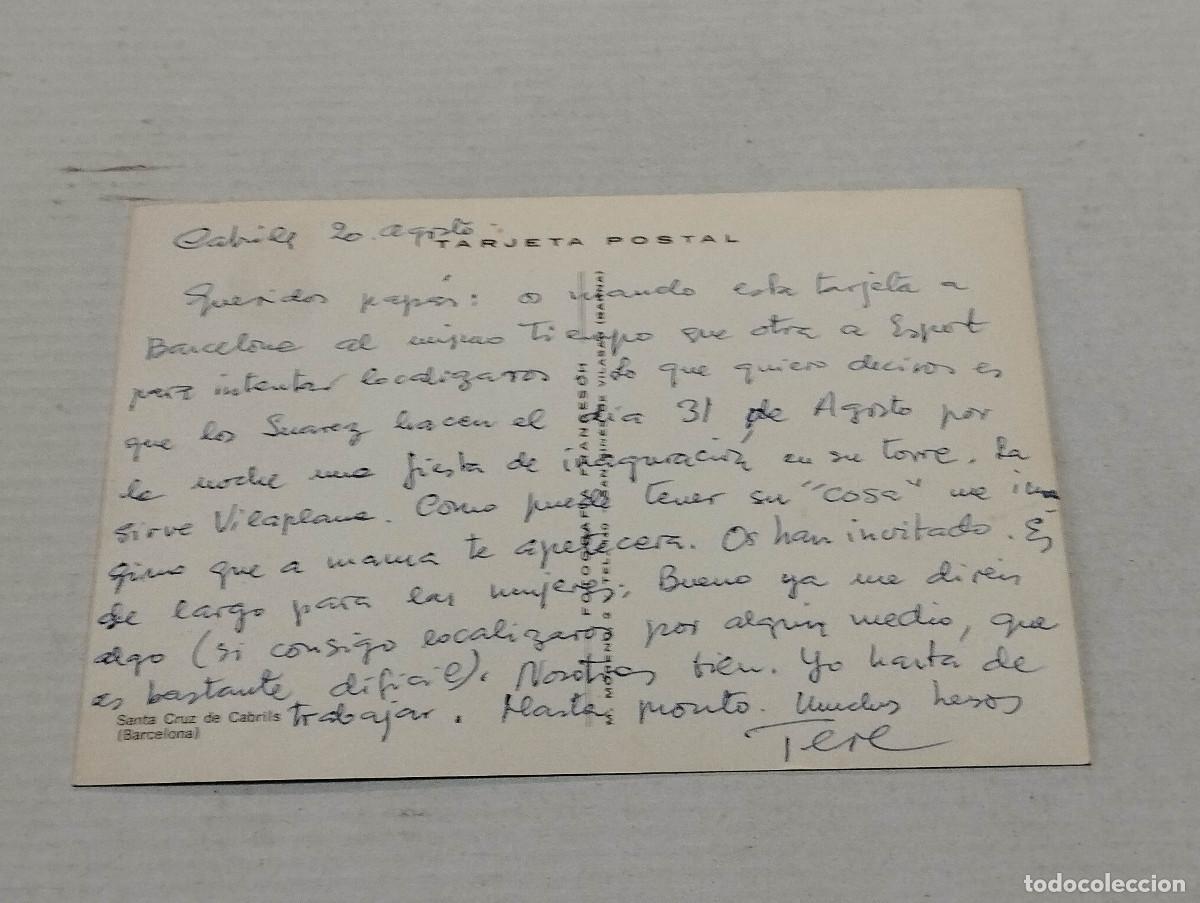 Cabrils 20. Agosto.
TARJETA POSTAL
Queridos papás: os mando esta tarjeta a
Barcelona al mismo tiempo que otra a Espot
para intentar localizaros. Lo que quiero deciros es
que los Suarez hacen el dia 31 de Agosto por
la noche una fiesta de inaguración en su torre. La
sirve Vilaplana. Como puede tener su "cosa" me ima
gino que a mama te apetecera. Os han invitado. Es
de largo para las mujeres. Bueno ya me direis
algo (si consigo localizaros por algun medio, que
es bastante dificil). Nosotros bien. Yo harta de
trabajar. Hasta pronto. Muchos besos
Tere
Santa Cruz de Cabrils
(Barcelona)
FOTOGRAFIAS FRANCESCH
todocoleccion